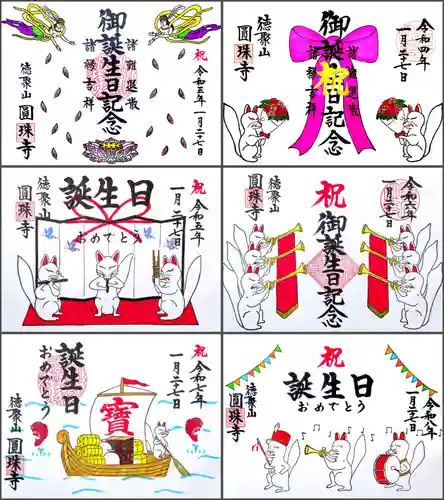 祝
令和三年
一月二十七日
御誕生日記念
諸難退散
諸縁吉祥
徳聚山
圓珠寺
令和四年
一月二十七日
祝
御誕生日記念
諸難退散
諸縁吉祥
徳聚山
圓珠寺
祝
令和五年
一月二十七日
誕生日
おめでとう
徳聚山
圓珠寺
令和六年
一月二十七日
祝
御誕生日記念
徳聚山
圓珠寺
祝
令和七年
一月二十七日
誕生日
おめでとう
寳
徳聚山
圓珠寺
祝
誕生日
おめでとう
令和八年
一月二十七日
徳聚山
圓珠寺